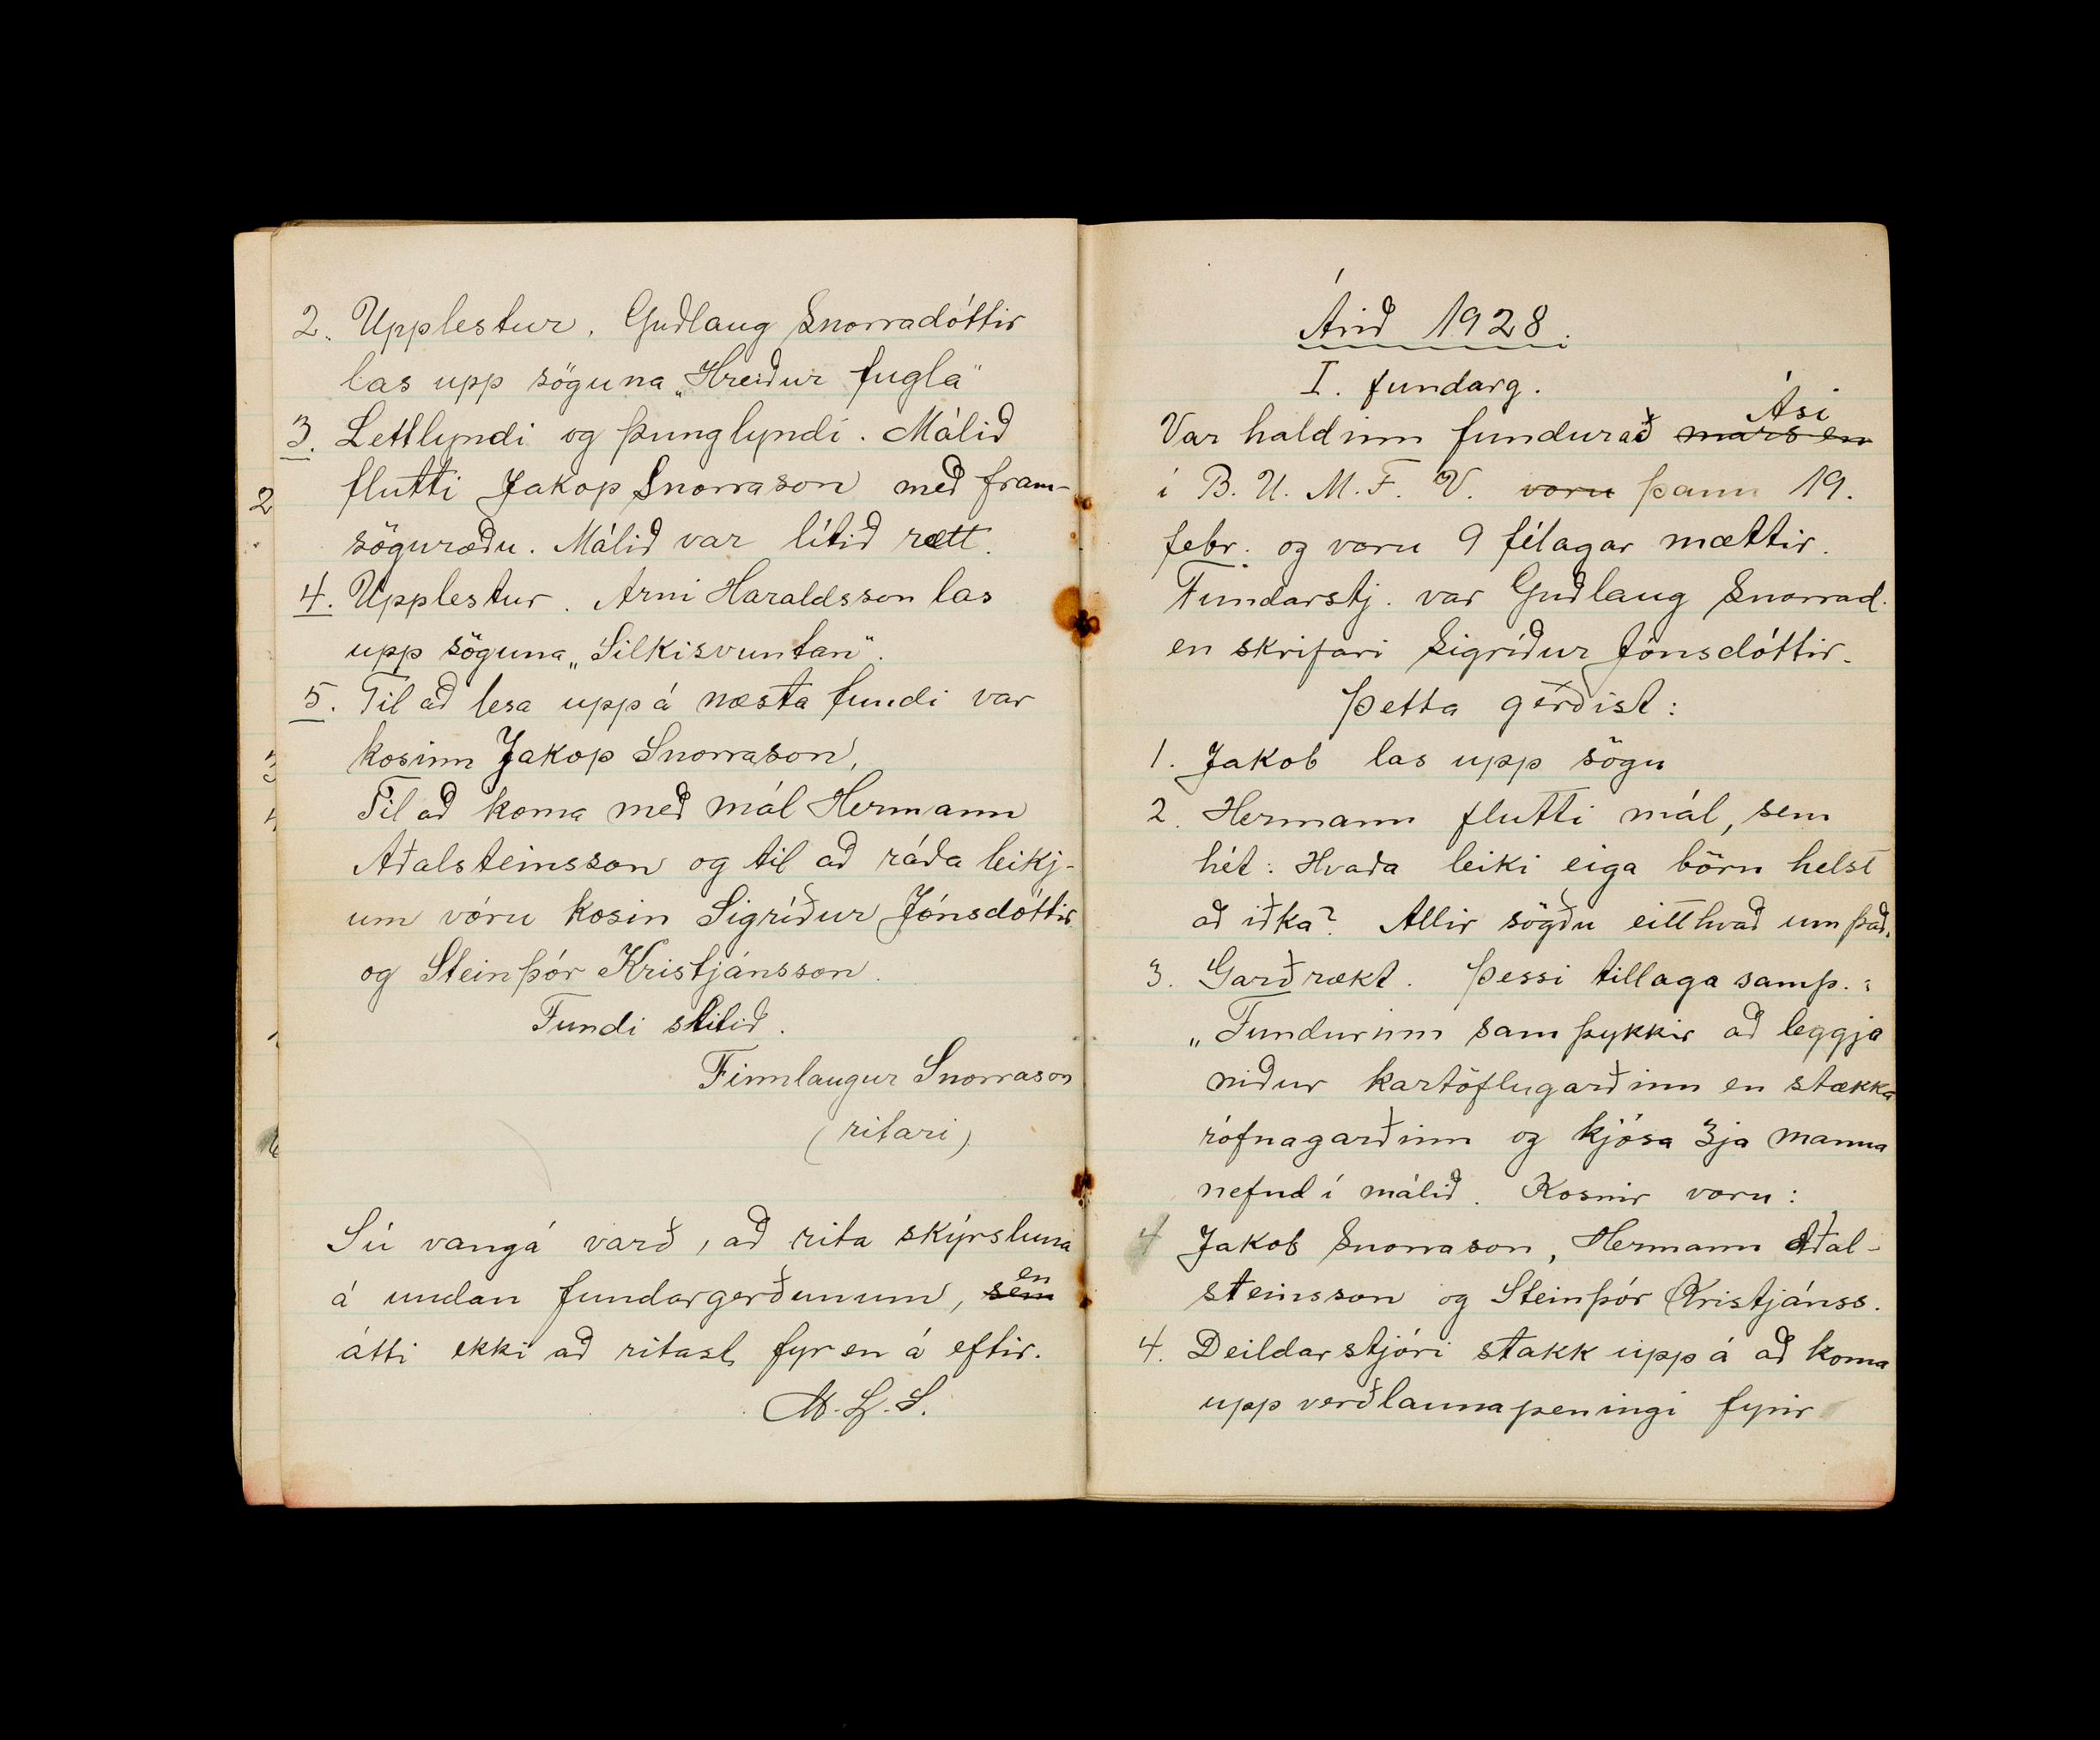 2. Upplestur. Guðlaug Snorradóttir
las upp söguna „Hreiður fugla"
3. Lettlyndi og þunglyndi. Málið
flutti Jakop Snorrason með fram-
söguræðu. Málið var lítið rætt.
4. Upplestur. Arni Haraldsson las
upp söguna „Silkisvuntan".
5. Til að lesa upp á næsta fundi var
kosinn Jakop Snorrason,
Til að koma með mál Hermann
Aðalsteinsson og til að ráða leikj-
um vóru kosin Sigríður Jónsdóttir
og Steinþór Kristjánsson.
Fundi slitið.
Finnlaugur Snorrason
(ritari)
Sú vangá varð, að rita skýrsluna
en
á undan fundargerðunum, sem
átti ekki að ritast fyr en á eftir.
M. L. S.
Árið 1928.
I. fundarg.
Ási
Var haldinn fundur að mars en
í B. U. M. F. V. voru þann 19.
febr. og voru 9 félagar mættir.
Fundarstj. var Guðlaug Snorrad.
en skrifari Sigríður Jónsdóttir.
Þetta gerðist:
1. Jakob las upp sögu
2. Hermann flutti mál, sem
hét: Hvaða leiki eiga börn helst
að iðka? Allir sögðu eitthvað um það.
3. Garðrækt. Þessi tillaga samþ.:
„Fundurinn samþykkir að leggja
niður kartöflugarðinn en stækka
rófnagarðinn og kjósa 3ja manna
nefnd í málið. Kosnir voru:
4 Jakob Snorrason, Hermann Aðal-
steinsson og Steinþór Kristjánss.
4. Deildarstjóri stakk upp á að koma
upp verðlaunapeningi fyrir